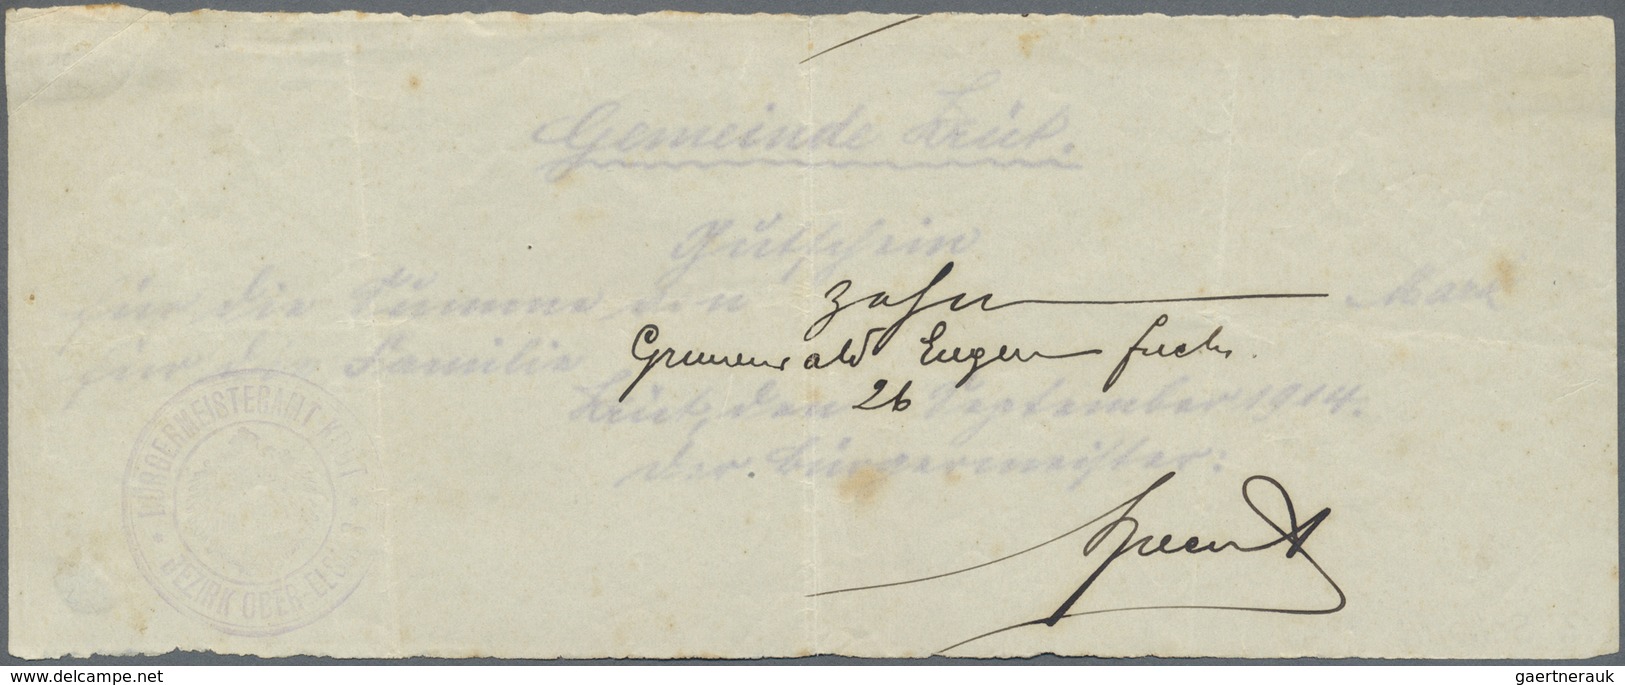 Gemeinde Krüt.
Gutschein
für die Summe von zehn Mark
für die Familie Grunenwald Eugen
Krüt, den 26 September 1914.
Der Bürgermeister:
BÜRGERMEISTERAMT KRÜT
BEZIRK OBER-ELSASS
delcampe.net
gaertnerauk